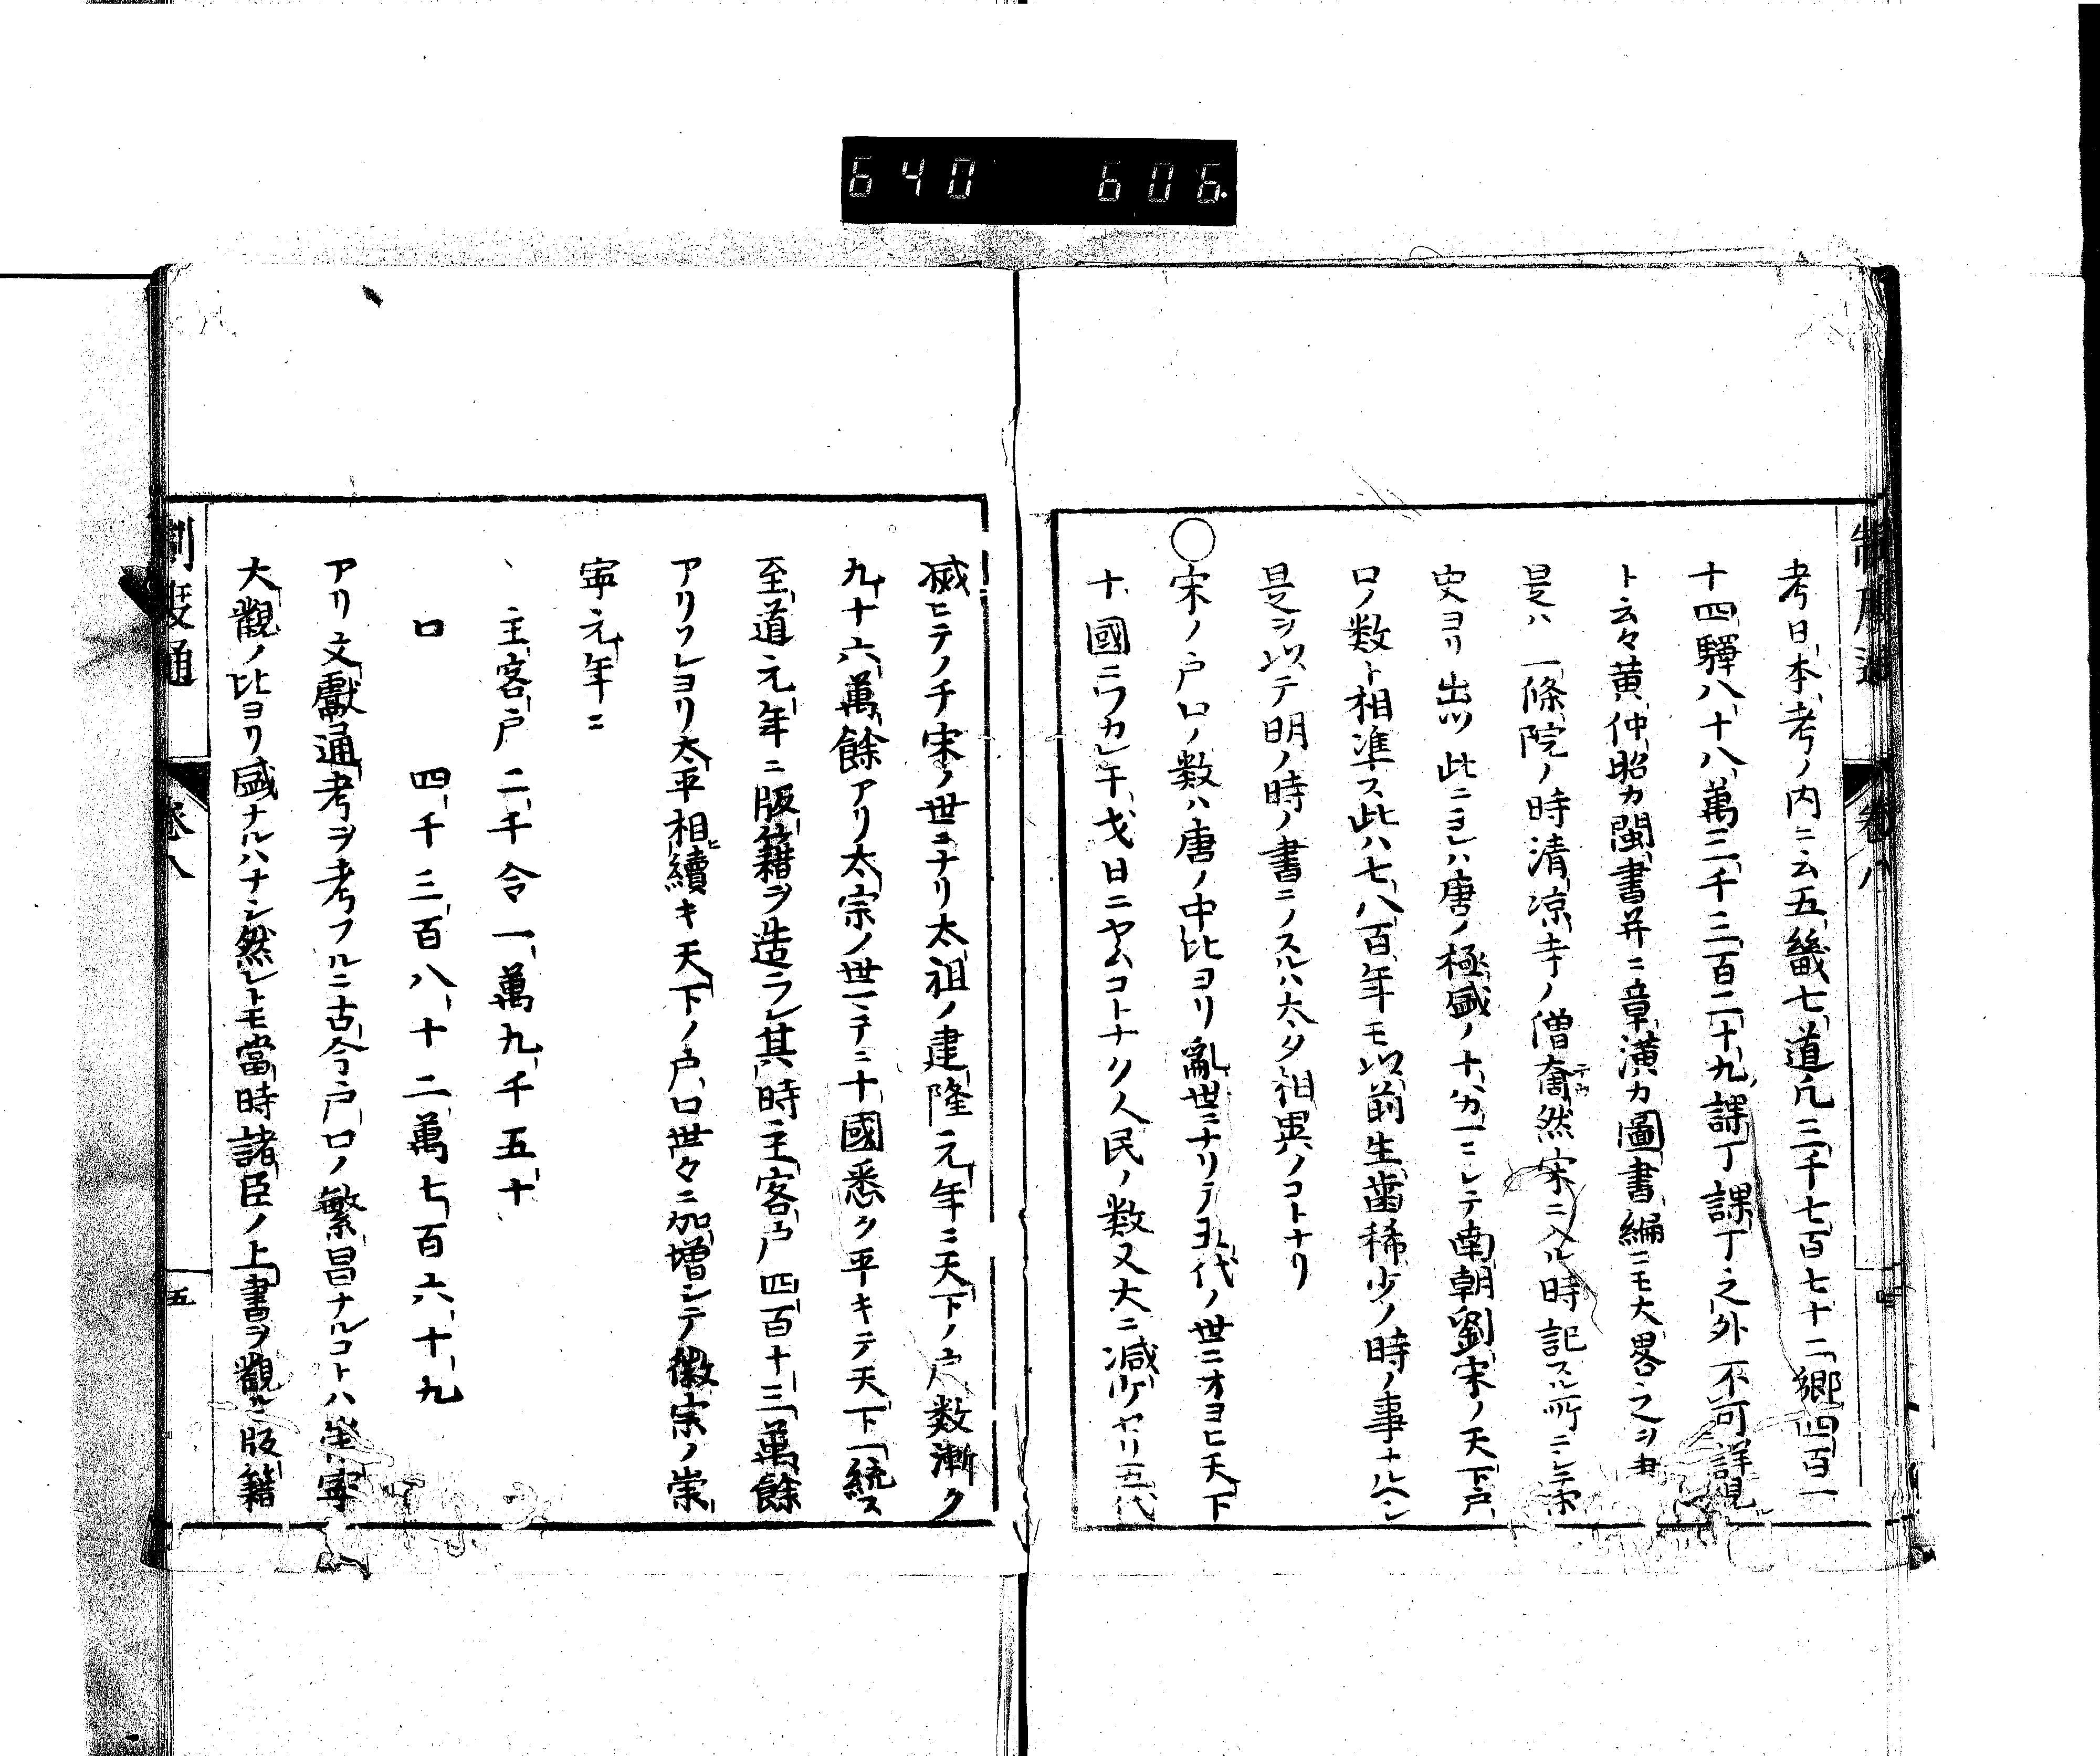 640 606
制度通 卷八
考日本考ノ内ニ云五畿七道凡三千七百七十二郷四百一
十四驛八十八萬三千三百二十九課丁課丁之外不可詳見
ト云々黄仲昭カ閩書并ニ章潢カ圖書編ニモ大畧之ヲ
是ハ一條院ノ時清凉寺ノ僧奝然宋ニ入ル時記スル所ニシテ宋
史ヨリ出ツ此ニヨレハ唐ノ極盛ノ十カ一ニシテ南朝劉宋ノ天下戸
口ノ数ト相準ス此ハ七八百年モ以前生齒稀少ノ時ノ事ナルヘシ
是ヲ以テ明ノ時ノ書ニノスルハ太タ相異ノコトナリ
○宋ノ戸口ノ数ハ唐ノ中比ヨリ亂世ニナリテ五代ノ世ニオヨヒ天下
十國ニワカレ干戈日ニヤムコトナク人民ノ数又大ニ減少セリ五代
滅ヒテノチ宋ノ世ニナリ太祖ノ建隆元年ニ天下ノ戸数漸ク
九十六萬餘アリ太宗ノ世ニテ十國悉ク平キテ天下一統ス
至道元年ニ版籍ヲ造ラレ其時主客戸四百十三萬餘
アリソレヨリ太平相續キ天下ノ戸口世々ニ加増シテ徽宗ノ崇
寧元年ニ
主客戸二千令一萬九千五十
口 四千三百八十二萬七百六十九
アリ文獻通考ヲ考フルニ古今戸口ノ繁昌ナルコトハ崇寧
大觀ノ比ヨリ盛ナルハナシ然レトモ當時諸臣ノ上書ヲ觀ルニ版籍
制度通 卷八 五